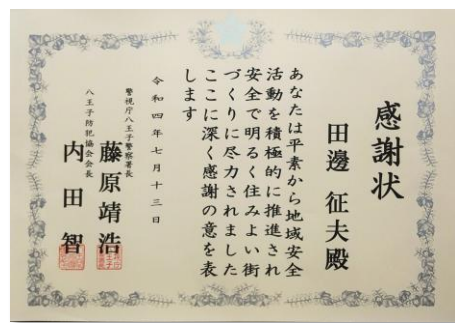 感謝状
田邊 征夫殿
あなたは平素から地域安全
活動を積極的に推進され
安全で明るく住みよい街
づくりに尽力されました
ここに深く感謝の意を表
します
令和四年七月十三日
警視庁八王子警察署長
藤原靖浩
八王子防犯協会会長
内田智